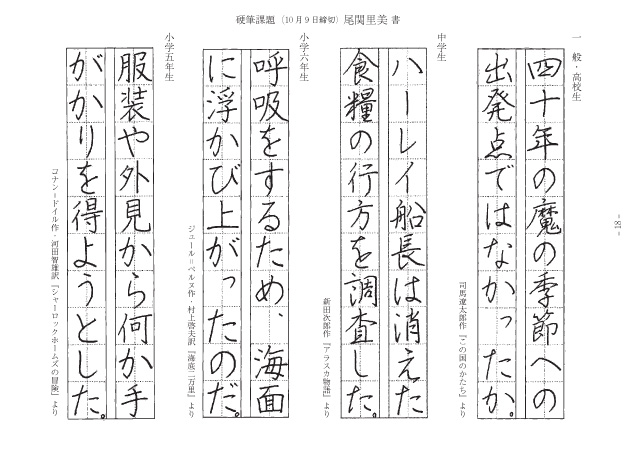 硬筆課題（10月9日締切）尾関里美 書
一般・高校生
四十年の魔の季節への
出発点ではなかったか。
司馬遼太郎作『この国のかたち』より
中学生
ハーレイ船長は消えた
食糧の行方を調査した。
新田次郎作『アラスカ物語』より
小学六年生
呼吸をするため、海面
に浮かび上がったのだ。
ジュール＝ベルヌ作・村上啓夫訳『海底二万里』より
小学五年生
服装や外見から何か手
がかりを得ようとした。
コナン＝ドイル作・河田智雄訳『シャーロックホームズの冒険』より